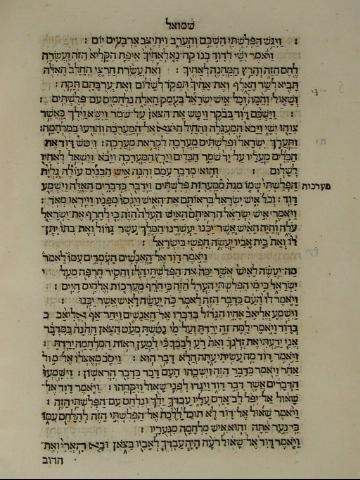 שמואל
ויגש הפלשתי השכם והערב ויתיצב ארבעים יום :
ויאמר ישי לדוד בנו קח נא לאחיך איפת הקליא הזה ועשרת
לחם הזה והרץ המחנה לאחיך : ואת עשרת חרצי החלב האלה
תביא לשר האלף ואת אחיך תפקד לשלום ואת ערבתם תקח :
ושאול והמה וכל איש ישראל בעמק האלה נלחמים עם פלשתים :
וישכם דוד בבקר ויטש את הצאן על שמר וישא וילך כאשר
צוהו ישי ויבא המעגלה והחיל היצא אל המערכה והרעו במלחמה :
ותערך ישראל ופלשתים מערכה לקראת מערכה : ויטש דוד את
הכלים מעליו על יד שמר הכלים וירץ המערכה ויבא וישאל לאחיו
לשלום : והוא מדבר עמם והנה איש הבנים עולה גלית
הפלשתי שמו מגת ממערות פלשתים וידבר כדברים האלה וישמע
מערכות
דוד : וכל איש ישראל בראותם את האיש וינסו מפניו וייראו מאד :
ויאמר איש ישראל הראיתם האיש העלה הזה כי לחרף את ישראל
עלה והיה האיש אשר יכנו יעשרנו המלך עשר גדול ואת בתו יתן
לו ואת בית אביו יעשה חפשי בישראל :
ויאמר דוד אל האנשים העמדים עמו לאמר
מה יעשה לאיש אשר יכה את הפלשתי הלז והסיר חרפה מעל
ישראל כי מי הפלשתי הערל הזה כי חרף מערכות אלהים חיים :
ויאמר לו העם כדבר הזה לאמר כה יעשה לאיש אשר יכנו :
וישמע אליאב אחיו הגדול בדברו אל האנשים ויחר אף אליאב
בדוד ויאמר למה זה ירדת ועל מי נטשת מעט הצאן ההנה במדבר
אני ידעתי את זדנך ואת רע לבבך כי למען ראות המלחמה ירדת :
ויאמר דוד מה עשיתי עתה הלא דבר הוא : ויסב מאצלו אל מול
אחר ויאמר כדבר הזה וישבהו העם דבר כדבר הראשון : וישמעו
הדברים אשר דבר דוד ויגדו לפני שאול ויקחהו : ויאמר דוד אל
שאול אל יפל לב אדם עליו עבדך ילך ונלחם עם הפלשתי הזה :
ויאמר שאול אל דוד לא תוכל ללכת אל הפלשתי הזה להלחם עמו
כי נער אתה והוא איש מלחמה מנעריו :
ויאמר דוד אל שאול רעה היה עבדך לאביו בצאן ובא הארי ואת
הדוב